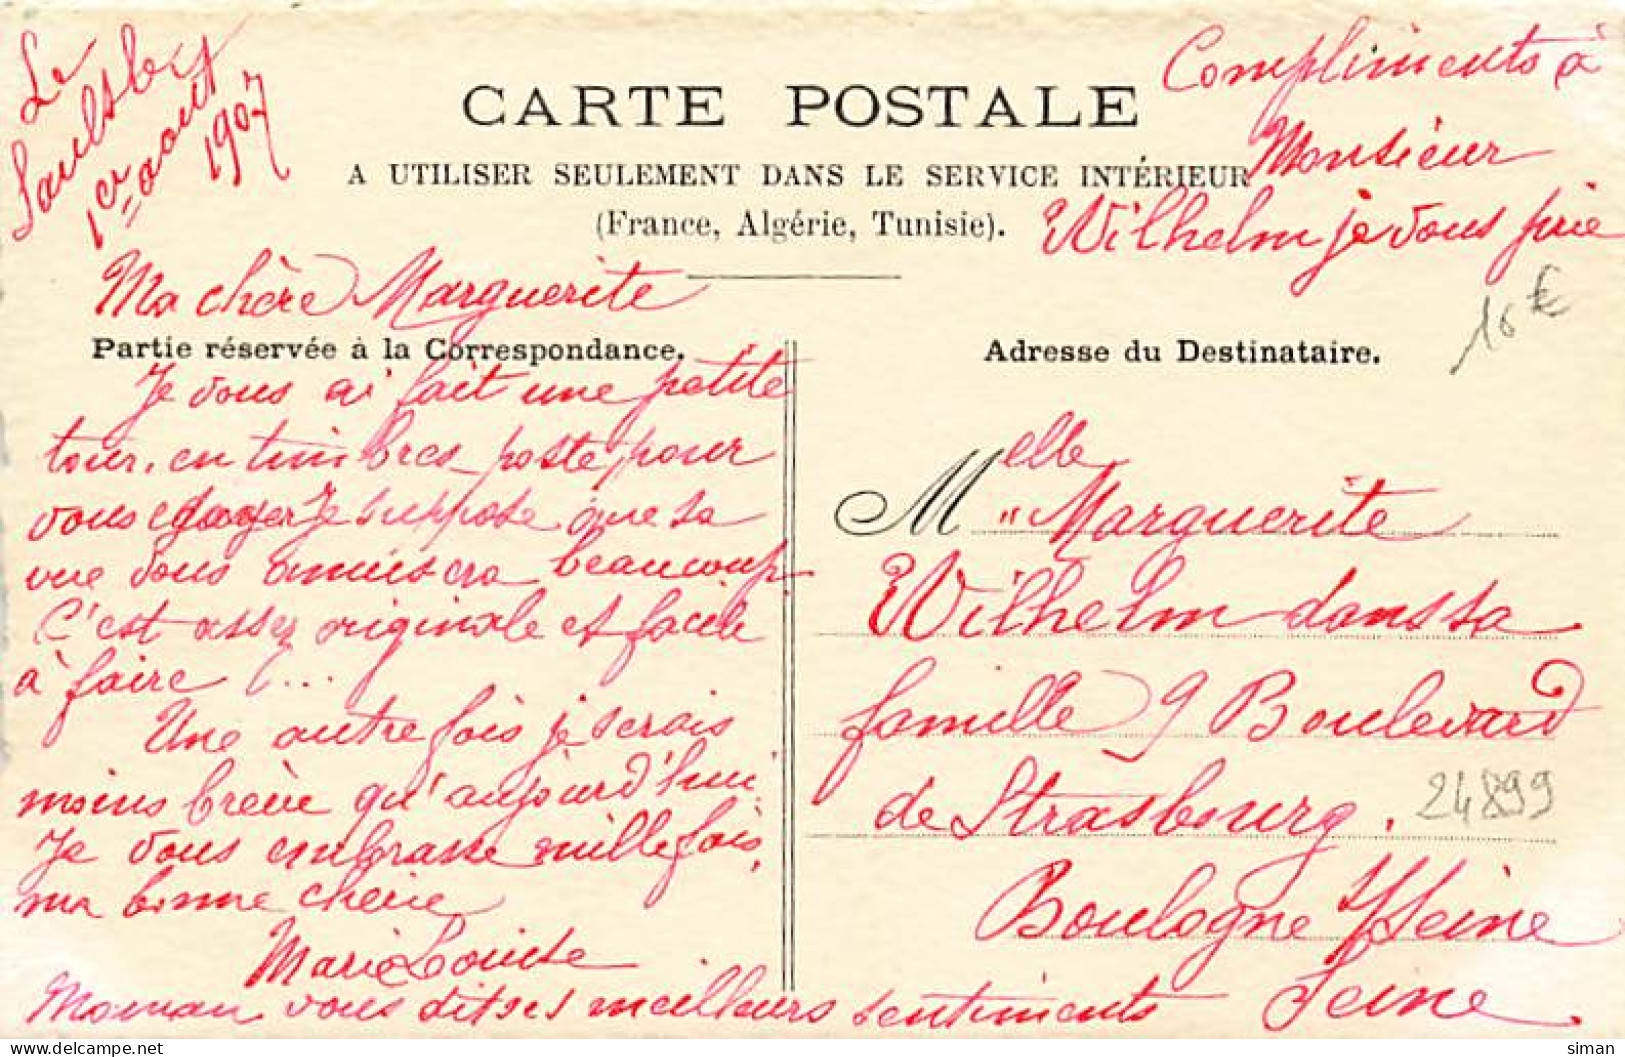 Le
Saulsbes
1er aout
1907
Compliments à
Monsieur
Wilhelm je vous prie
CARTE POSTALE
A UTILISER SEULEMENT DANS LE SERVICE INTÉRIEUR
(France, Algérie, Tunisie).
Ma chère Marguerite
Partie réservée à la Correspondance.
Je vous ai fait une petite
tour, en timbres-poste pour
vous égayer Je suppose que sa
vue vous amusera beaucoup
C'est assez originale et facile
à faire !...
Une autre fois je serais
moins brève qu'aujourd'hui.
Je vous embrasse mille fois,
ma bonne chérie
Marie Louise
Maman vous dit ses meilleurs sentiments
Adresse du Destinataire.
16 €
Melle
" Marguerite
Wilhelm dans sa
famille 9 Boulevard
de Strasbourg.
24899
Boulogne s/Seine
Seine
delcampe.net
siman